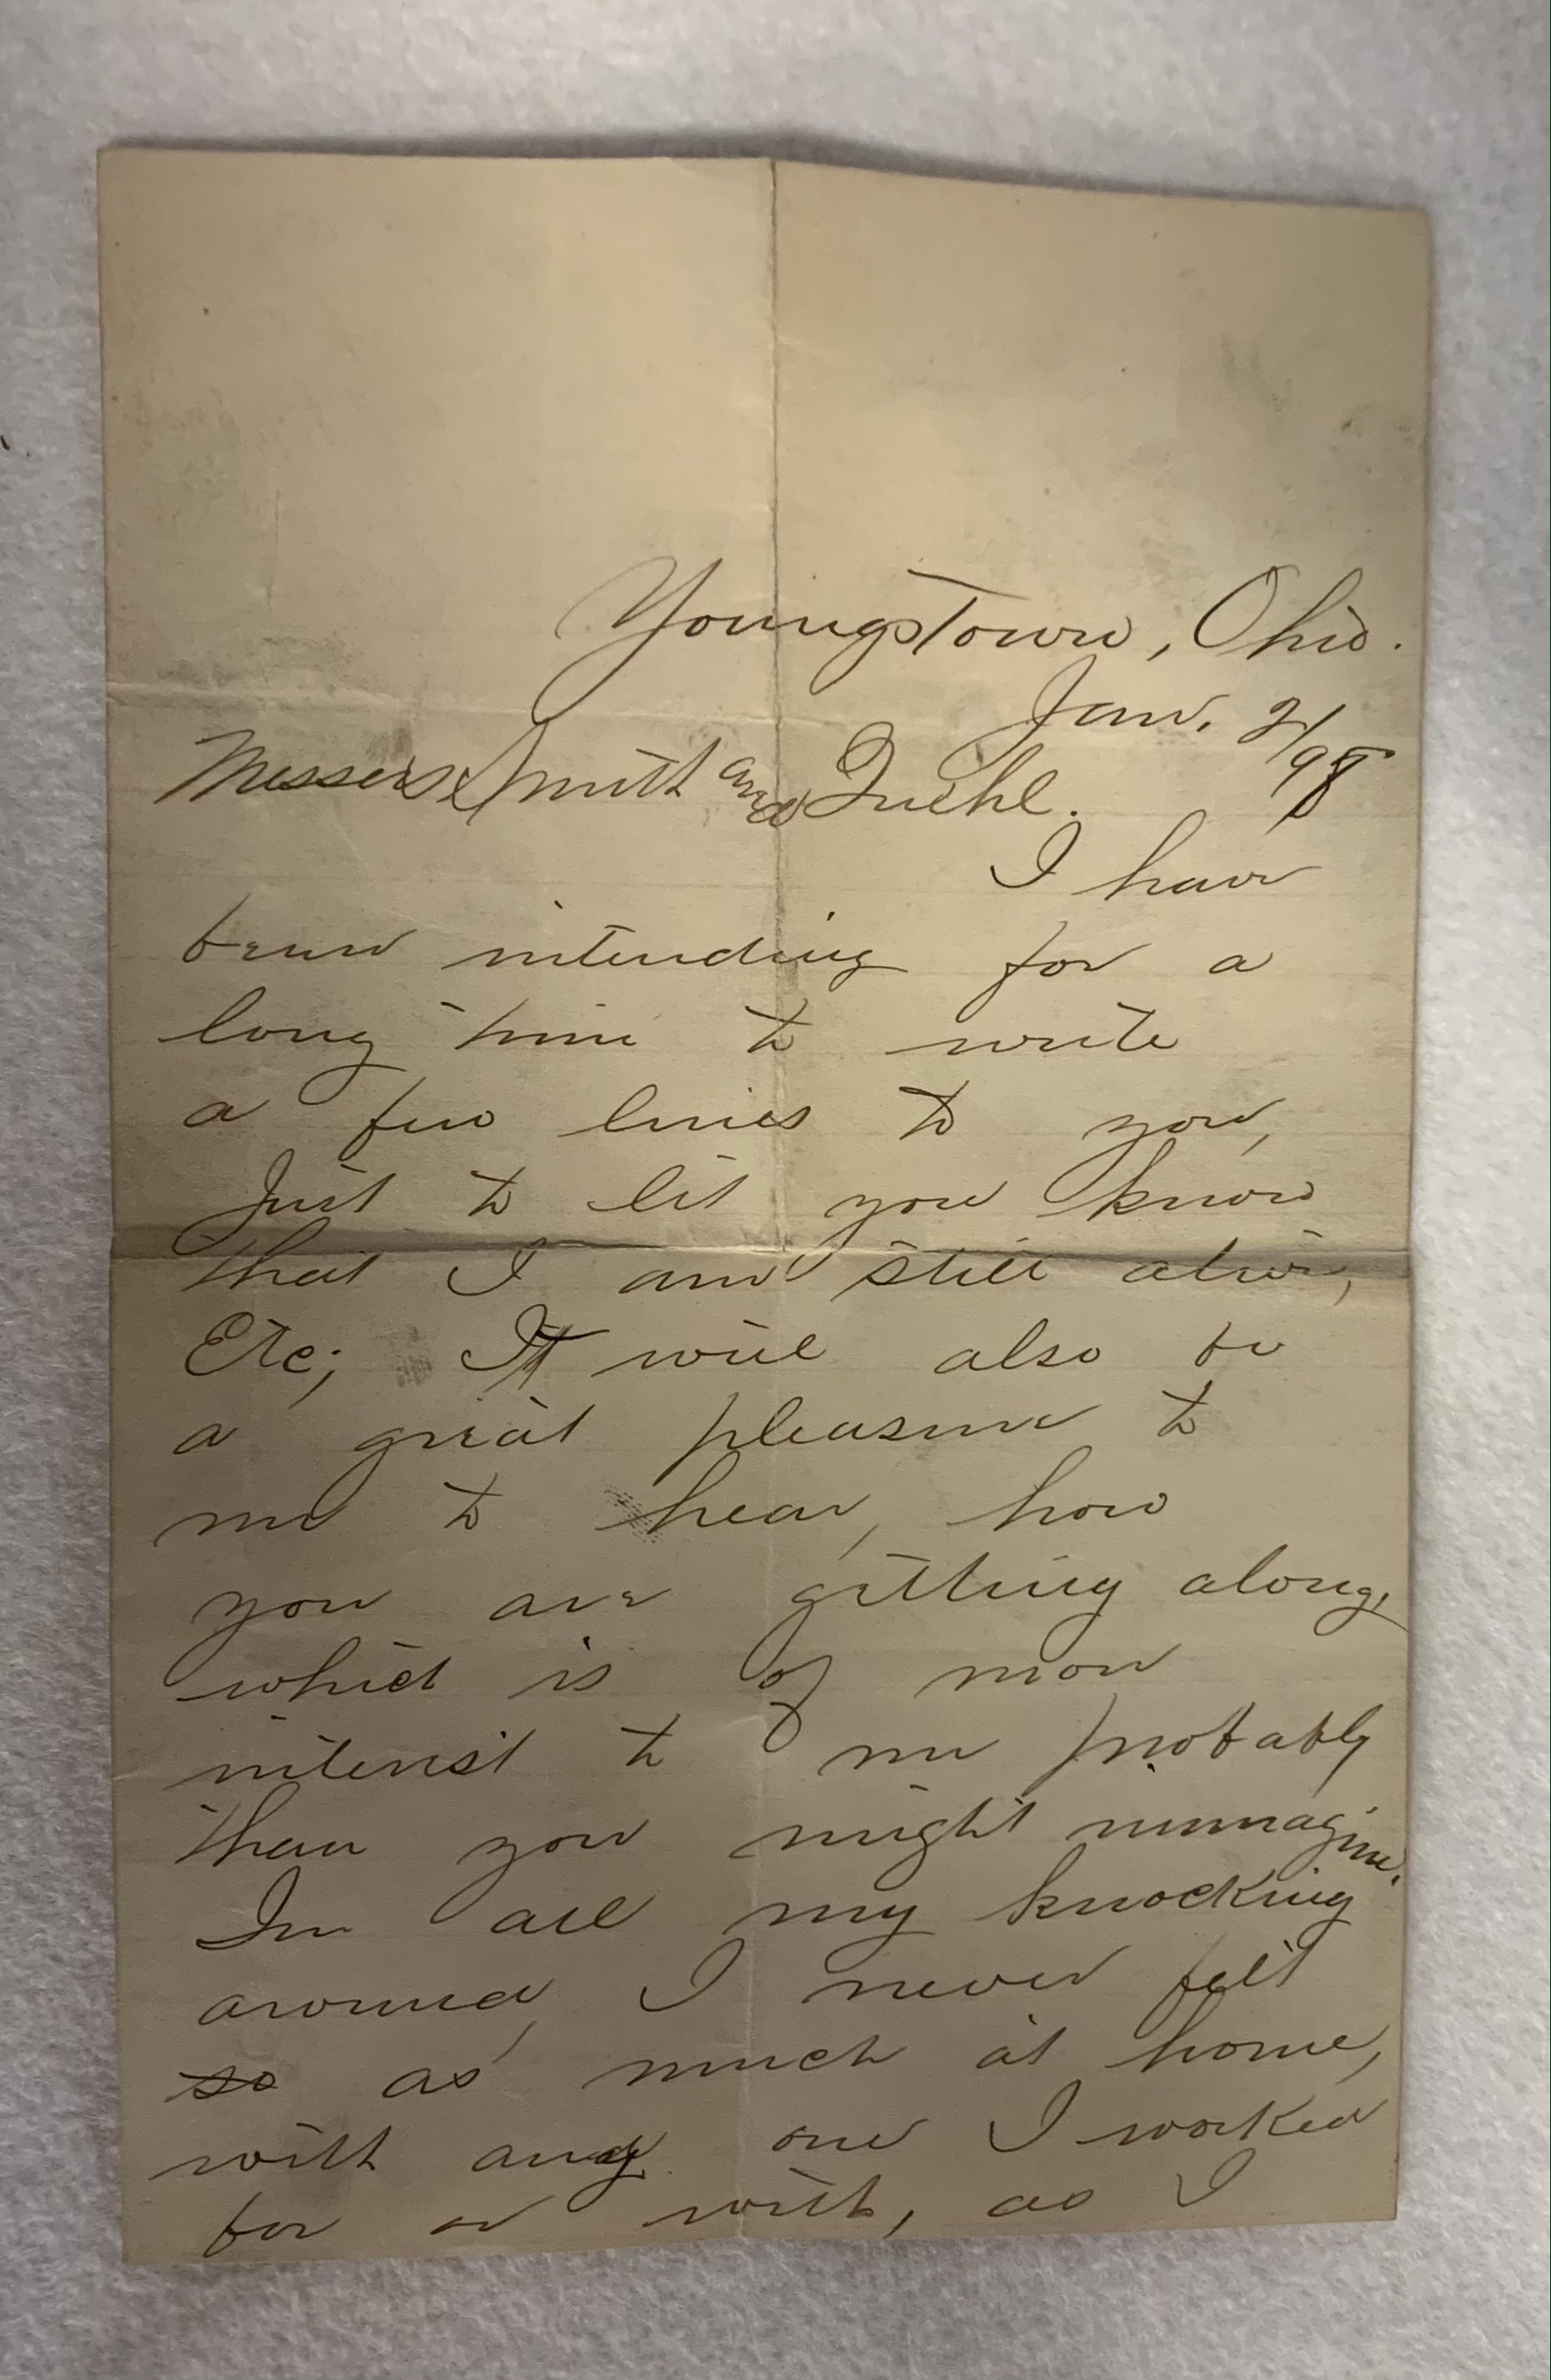 Youngstown, Ohio.
Jan. 2/98
Messers Smith and Quehl.
I have
been intending for a
long time to write
a few lines to you,
Just to let you know
that I am still alive,
Etc; It will also be
a great pleasure to
me to hear, how
you are getting along,
which is of more
interest to me probably
than you might immagine.
In all my knocking
around, I never felt
~~so~~ as much at home,
with any one I worked
for or with, as I